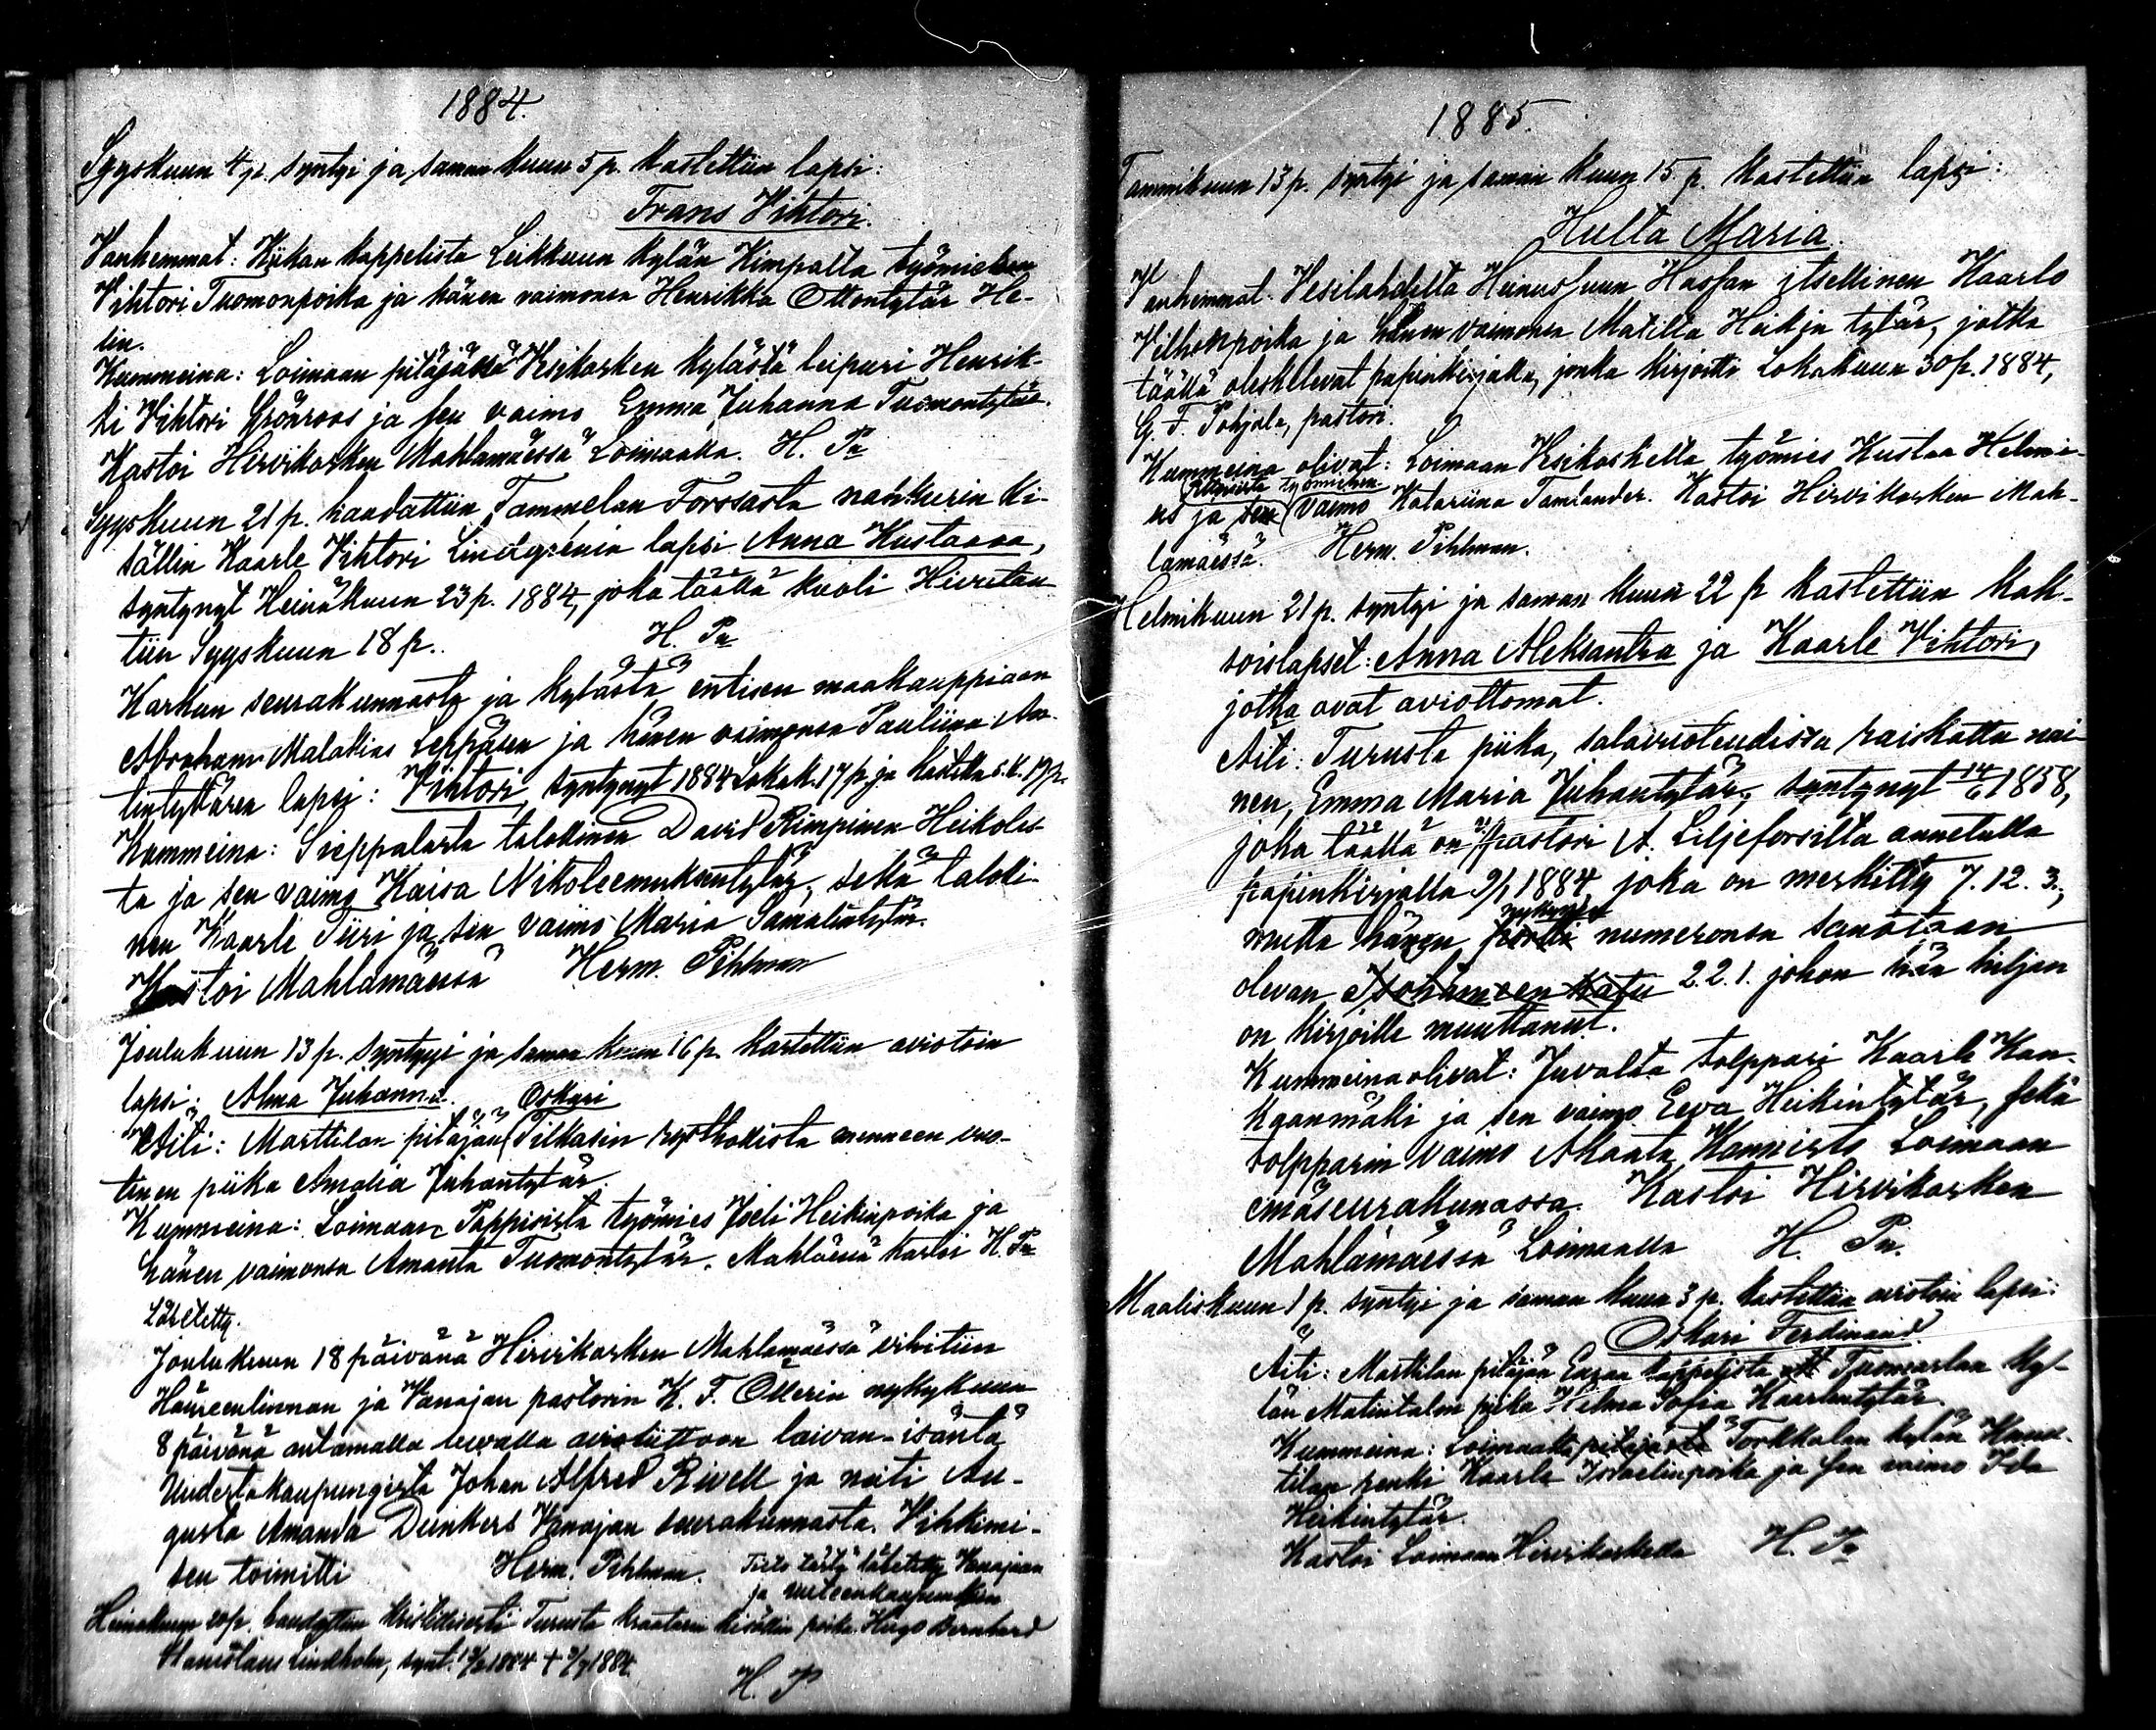 1884.
Syyskuun 4 p. syntyi ja saman kuun 5 p. kastettiin lapsi:
Frans Vihtori.
Vanhemmat: Kiikan kappelista Leikkuun kylän Kimpalta työmiehen
Vihtori Tuomonpoika ja hänen vaimonsa Henrikka Ottontytär He-
lin.
Kummeina: Loimaan pitäjässä Vesikosken kylästä leipuri Henrik-
ki Vihtori Grönroos ja sen vaimo Emma Juhanna Tuomontytär.
Kastoi Hirvikosken Mahlamäessä Loimaalla. H. Pn
Syyskuun 21 p. haudattiin Tammelan Forssasta nahkurin ki-
sällin Kaarle Vihtori Lindgrénin lapsi Anna Kustaava,
syntynyt Heinäkuun 23 p. 1884, joka täällä kuoli
tiin Syyskuun 18 p. H. Pn
Karkun seurakunnasta ja kylästä entisen maakauppiaan
Abraham Malakias Leppäsen ja hänen vaimonsa Pauliina An-
tintyttären lapsi: Vihtori, syntynyt 1884 Lokak. 17 p. ja kastettu s.k. 19 p.
Kummeina: Sieppalasta talokinen David Rimpinen Heikolas-
ta ja sen vaimo Kaisa Nikoteemuksentytär, sekä taloki-
nen Kaarle Tiiri ja sen vaimo Maria Samulintytär.
Kastoi Mahlamäessä Herm. Pihlman
Joulukuun 13 p. syntyi ja saman kuun 16 p. kastettiin aviotoin
lapsi: Alma Juhanna. Oskari
Äiti: Marttilan pitäjän Tilkasin rusthollista menneen vuo-
tinen piika Amalia Juhantytär.
Kummeina: Loimaan Pappisista työmies Joeli Heikinpoika ja
hänen vaimonsa Amanta Tuomontytär. Mahlässä kastoi H. Pn
Lähetetty.
Joulukuun 18 päivänä Hirvikosken Mahlamäessä vihitiin
Hämeenlinnan ja Vanajan pastorin K. F. Ollerin nykykuun
8 päivänä antamalla luvalla avioliittoon laivan-isäntä
Uudestakaupungista Johan Alfred Rivell ja neiti Au-
gusta Amanda Dunkers Vanajan seurakunnasta. Vihkimi-
sen toimitti Herm. Pihlman. Tieto tästä lähetetty Vanajaan
ja Uuteenkaupunkiin
Heinäkuun 20 p. haudattiin kristillisesti Turusta kraatarin kisällin poika Hugo Bernhard
Stanislaus Lindholm, synt. 1884 + 1884.
H. P
1885.
Tammikuun 13 p. syntyi ja saman kuun 15 p. kastettiin lapsi:
Hulta Maria.
Vanhemmat: Vesilahdelta Heinussuun Hassan itsellinen Kaarlo
Vilhonpoika ja hänen vaimonsa Matilta Heikin tytär, jotka
täällä oleskelevat papinkirjalla, jonka kirjoitti Lokakuun 30 p. 1884,
G. F. Pohjala, pastori.
Kummeina olivat: Loimaan Vesikoskelta työmies Kustaa Helmi-
työmiehen
us ja sen vaimo Katariina Tamlander. Kastoi Hirvikosken Mah-
lamäessä. Herm. Pihlman.
Helmikuun 21 p. syntyi ja saman kuun 22 p kastettiin kak-
soislapset: Anna Aleksantra ja Kaarle Vihtori,
jotka ovat aviottomat.
Äiti: Turusta piika, salavuoteudissa raiskattu nai-
nen, Emma Maria Juhantytär, syntynyt 14/6 1858,
joka täällä on pastori A. Liljeforsilta annetulla
papinkirjalla 9/1 1884 joka on merkitty 7.12.3.,
nykyisen
mutta hänen numeronsa sanotaan
olevan 2.2.1. johon hän hiljan
on kirjoille muuttanut.
Kummeina olivat: Juvalta tolppari Kaarle Kan-
kaanmäki ja sen vaimo Eeva Heikintytär, sekä
tolpparin vaimo Akaata Kannisto Loimaan
emäseurakunnassa. Kastoi Hirvikosken
Mahlamäessä Loimaalla H. Pn.
Maaliskuun 1 p. syntyi ja saman kuun 3 p. kastettiin aviotoin lapsi:
Oskari Ferdinand.
Äiti: Marttilan pitäjän Euran kappelista Tuomarlan ky-
län Matintalon piika Hilma Sofia Kaarlentytär.
Kummeina: Loimaalta pitäjästä Torkkalan kylän Hann-
tilan renki Kaarle Israelinpoika ja sen vaimo Ida
Heikintytär.
Kastoi Loimaan Hirvikoskella H. Pn